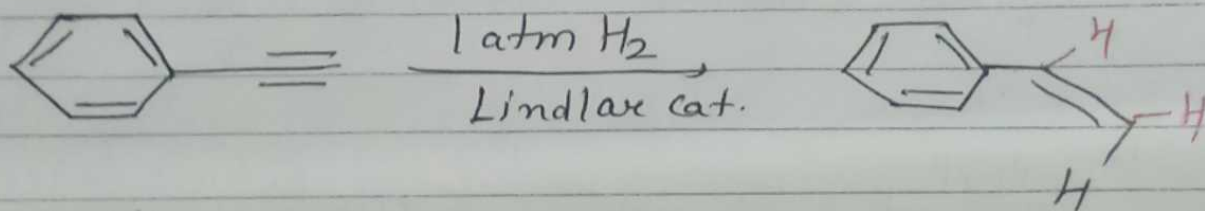 1 atm H2
Lindlar cat.
H
H
H